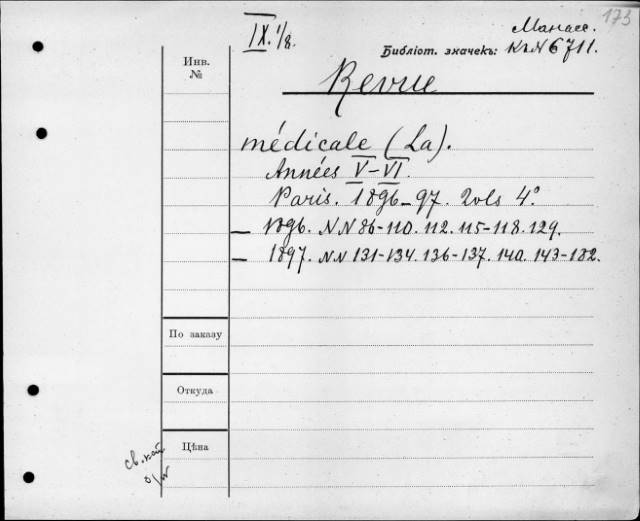 173
IX. 1/8.
Манасс.
Библіот. значекъ: КлN 6711.
Инв.
№
Revue
médicale (La).
Années V-VI.
Paris. 1896-97. 2vols 4°
— 1896. NN 86-110. 112. 115-118. 129.
— 1897. NN 131-134. 136-137. 140. 143-182.
По заказу
Откуда
Цѣна
св.